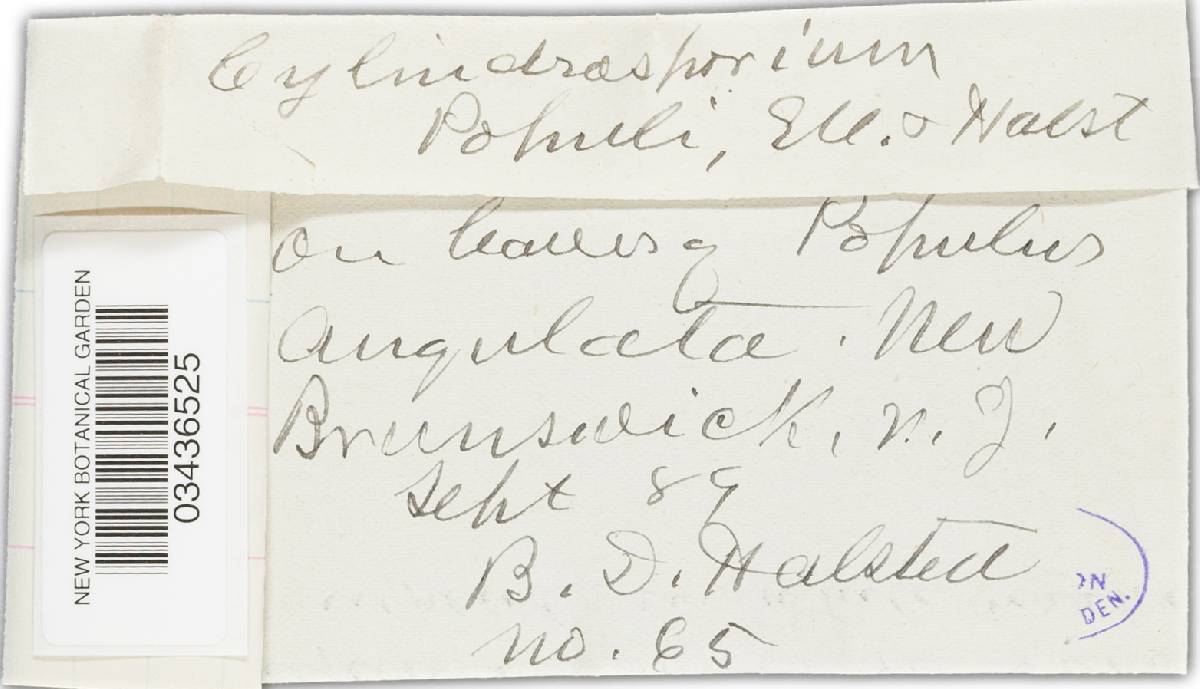 Cylindrosporium
Populi, Ell. & Halst
on leaves of Populus
angulata. New
Brunswick, N. J.
Sept 89
B. D. Halsted
No. 65
NEW YORK BOTANICAL GARDEN
03436525
DEN.